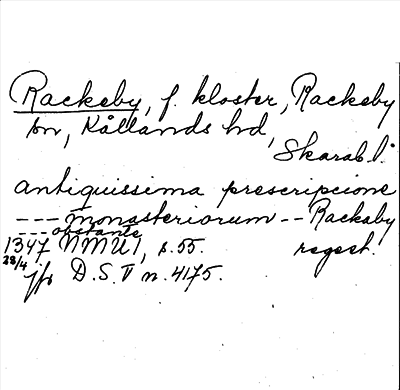 Rackeby, f. kloster, Rackeby
sn, Kållands hd,
Skarab. l.
antiquissima prescripcione
--- monasteriorum -- Rackaby
--- obstante
1347 NMU1, s. 55. regest.
28/4 jfr D.S. V n. 4175.